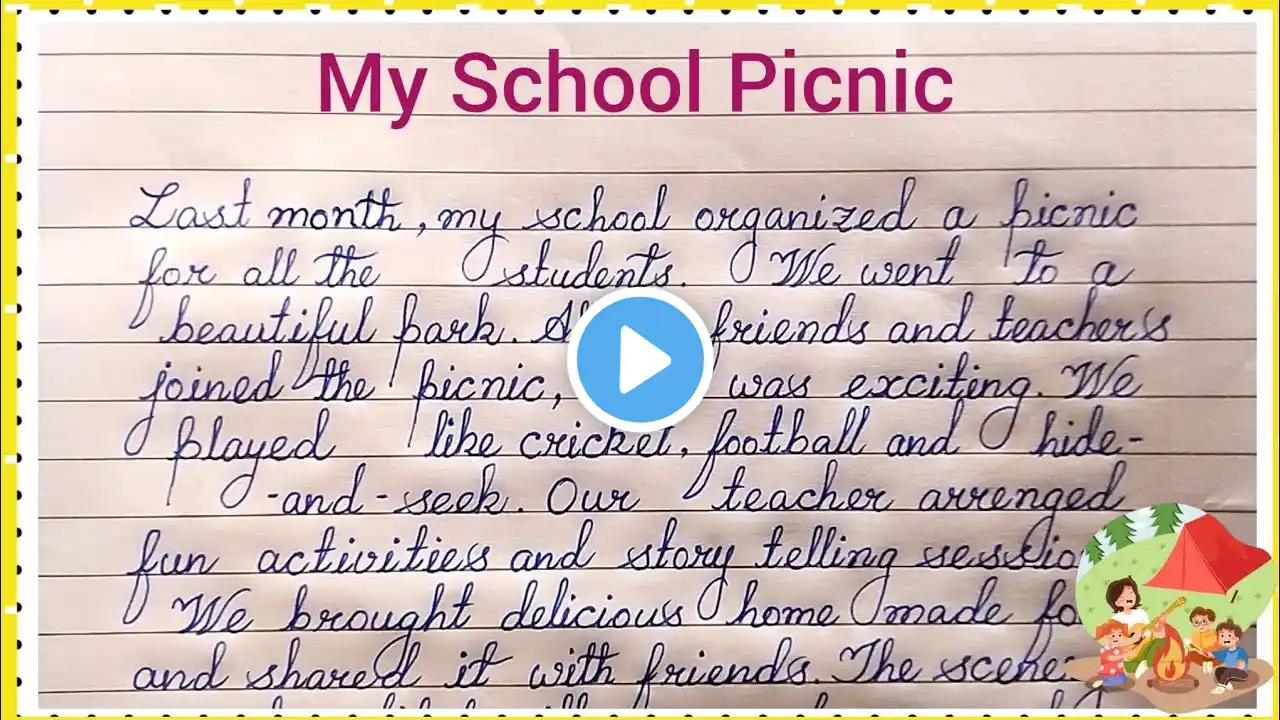 My School Picnic
Last month, my school organized a picnic
for all the students. We went to a
beautiful park. friends and teachers
joined the picnic, was exciting. We
played like cricket, football and hide-
-and-seek. Our teacher arrenged
fun activities and story telling
We brought delicious home made
and shared it with friends. The